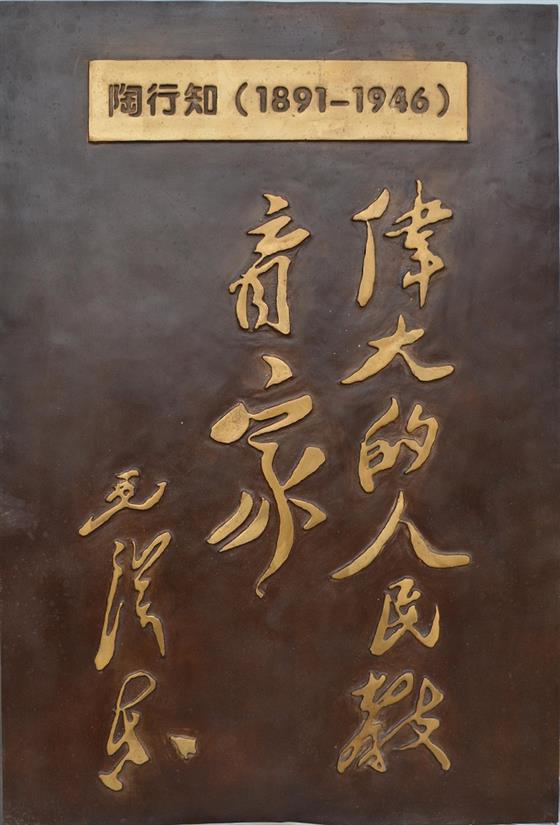 陶行知（1891-1946）
偉大的人民教
育家
毛澤东